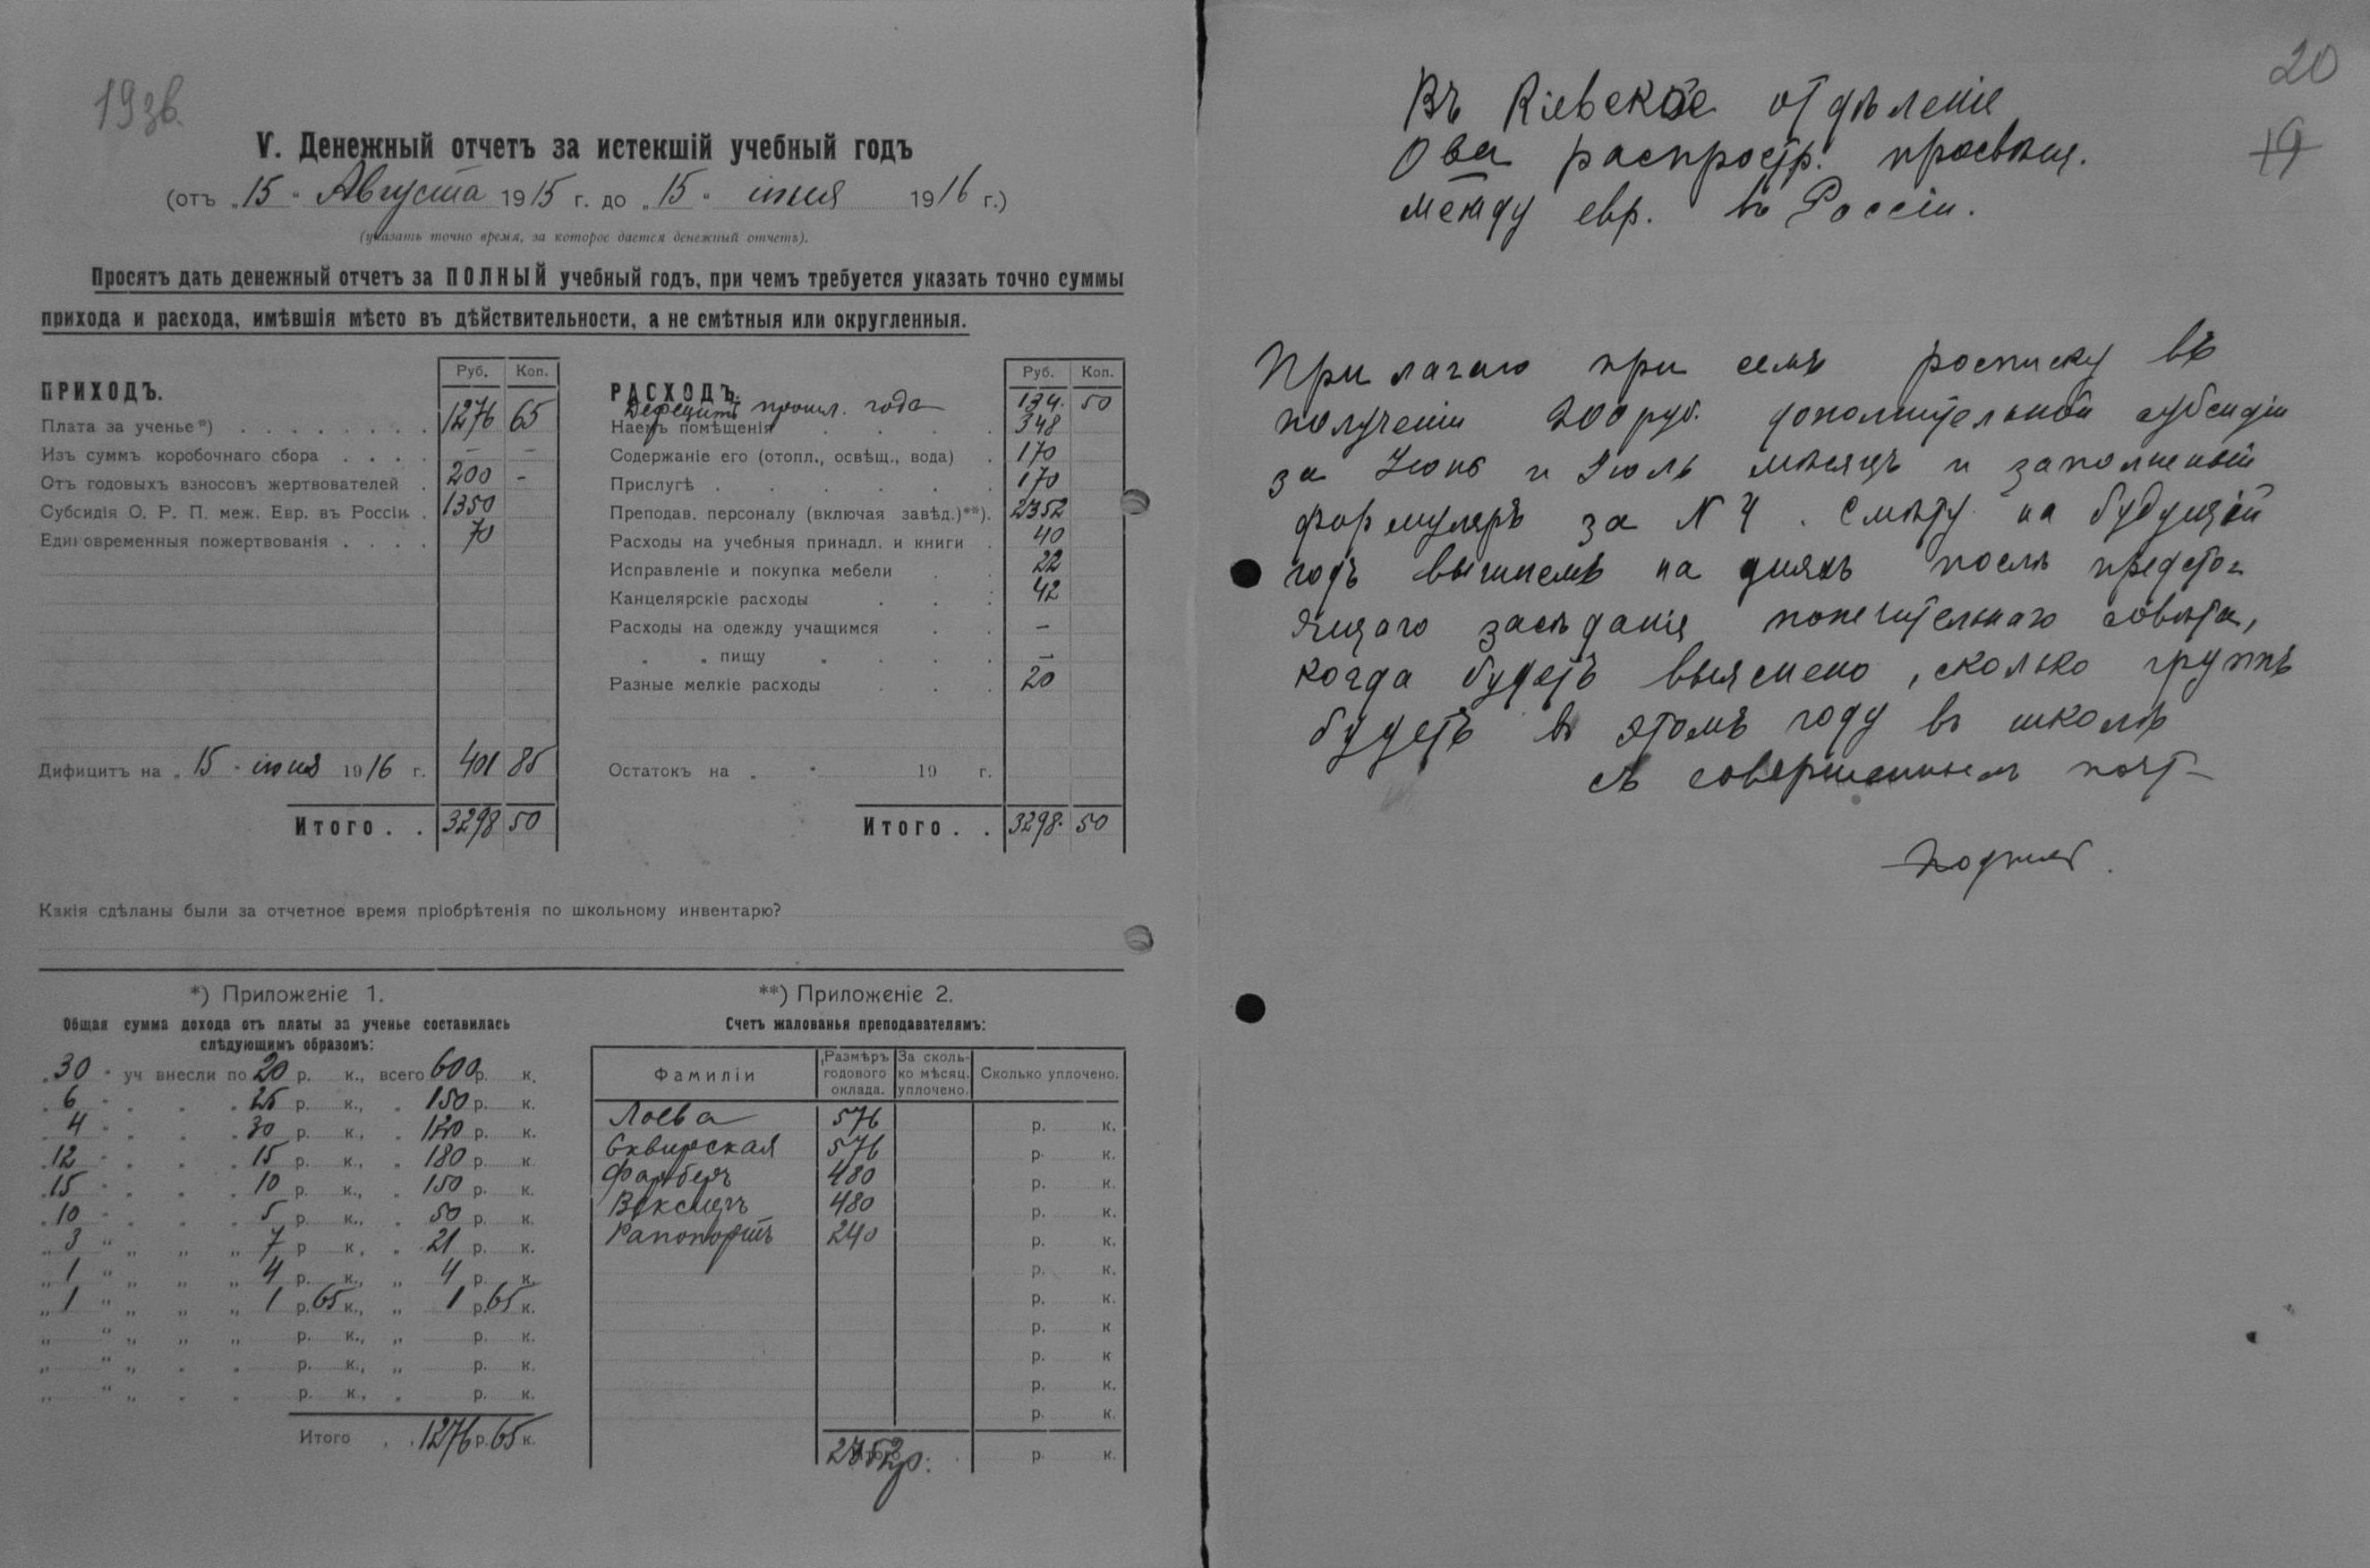 19 зв.
V. Денежный отчетъ за истекшій учебный годъ
(отъ „15" Августа 1915 г. до „15" іюня 1916 г.)
(указать точно время, за которое дается денежный отчетъ).
Просятъ дать денежный отчетъ за ПОЛНЫЙ учебный годъ, при чемъ требуется указать точно суммы
прихода и расхода, имѣвшія мѣсто въ дѣйствительности, а не смѣтныя или округленныя.
ПРИХОДЪ. Руб. Коп.
Плата за ученье*) . . . . . . . . 1276 65
Изъ суммъ коробочнаго сбора . . . . — —
Отъ годовыхъ взносовъ жертвователей . 200 -
Субсидія О. Р. П. меж. Евр. въ Россіи . 1350
Единовременныя пожертвованія . . . . 70
Дифицитъ на „15" іюня 1916 г. 401 85
Итого . . 3298 50
РАСХОДЪ. Руб. Коп.
Дефецитъ прошл. года 134. 50
Наемъ помѣщенія . . . . 348
Содержаніе его (отопл., освѣщ., вода) . 170
Прислугѣ . . . . . . 170
Преподав. персоналу (включая завѣд.)**). 2352
Расходы на учебныя принадл. и книги . 40
Исправленіе и покупка мебели . . 22
Канцелярскіе расходы . . . 42
Расходы на одежду учащимся . . —
„ „ пищу „ . . . —
Разные мелкіе расходы . . . 20
Остатокъ на „ " 19 г.
Итого . . 3298. 50
Какія сдѣланы были за отчетное время пріобрѣтенія по школьному инвентарю?
*) Приложеніе 1.
Общая сумма дохода отъ платы за ученье составилась
слѣдующимъ образомъ:
„30" уч внесли по 20 р. к., всего 600 р. к.
„6" „ „ „ 25 р. к., „ 150 р. к.
„4" „ „ „ 30 р. к., „ 120 р. к.
„12" „ „ „ 15 р. к., „ 180 р. к.
„15" „ „ „ 10 р. к., „ 150 р. к.
„10" „ „ „ 5 р. к., „ 50 р. к.
„3" „ „ „ 7 р. к., „ 21 р. к.
„1" „ „ „ 4 р. к., „ 4 р. к.
„1" „ „ „ 1 р. 65 к., „ 1 р. 65 к.
„ " „ „ „ р. к., „ р. к.
„ " „ „ „ р. к., „ р. к.
„ " „ „ „ р. к., „ р. к.
Итого . . 1276 р. 65 к.
**) Приложеніе 2.
Счетъ жалованья преподавателямъ:
Фамиліи Размѣръ годового оклада. За сколько мѣсяц. уплочено. Сколько уплочено.
Лоева 576 р. к.
Сквирская 576 р. к.
Фарберъ 480 р. к.
Вексlerъ 480 р. к.
Рапопортъ 240 р. к.
р. к.
р. к.
р. к
р. к
р. к.
р. к.
Итого 2352 р. р. к.
20
19
Въ Кіевское отдѣленіе
О ва распростр. просвѣщ.
между евр. въ Россіи.
Прилагаю при семъ росписку въ
полученіи 200 руб. дополнительной субсидіи
за Іюнь и Іюль мѣсяцъ и заполненный
формуляръ за N 4. Смѣту на будущій
годъ вышлемъ на дняхъ послѣ предсто-
ящаго засѣданія попечительнаго совѣта,
когда будетъ выяснено, сколько группъ
будетъ въ этомъ году въ школѣ
съ совершеннымъ почт-